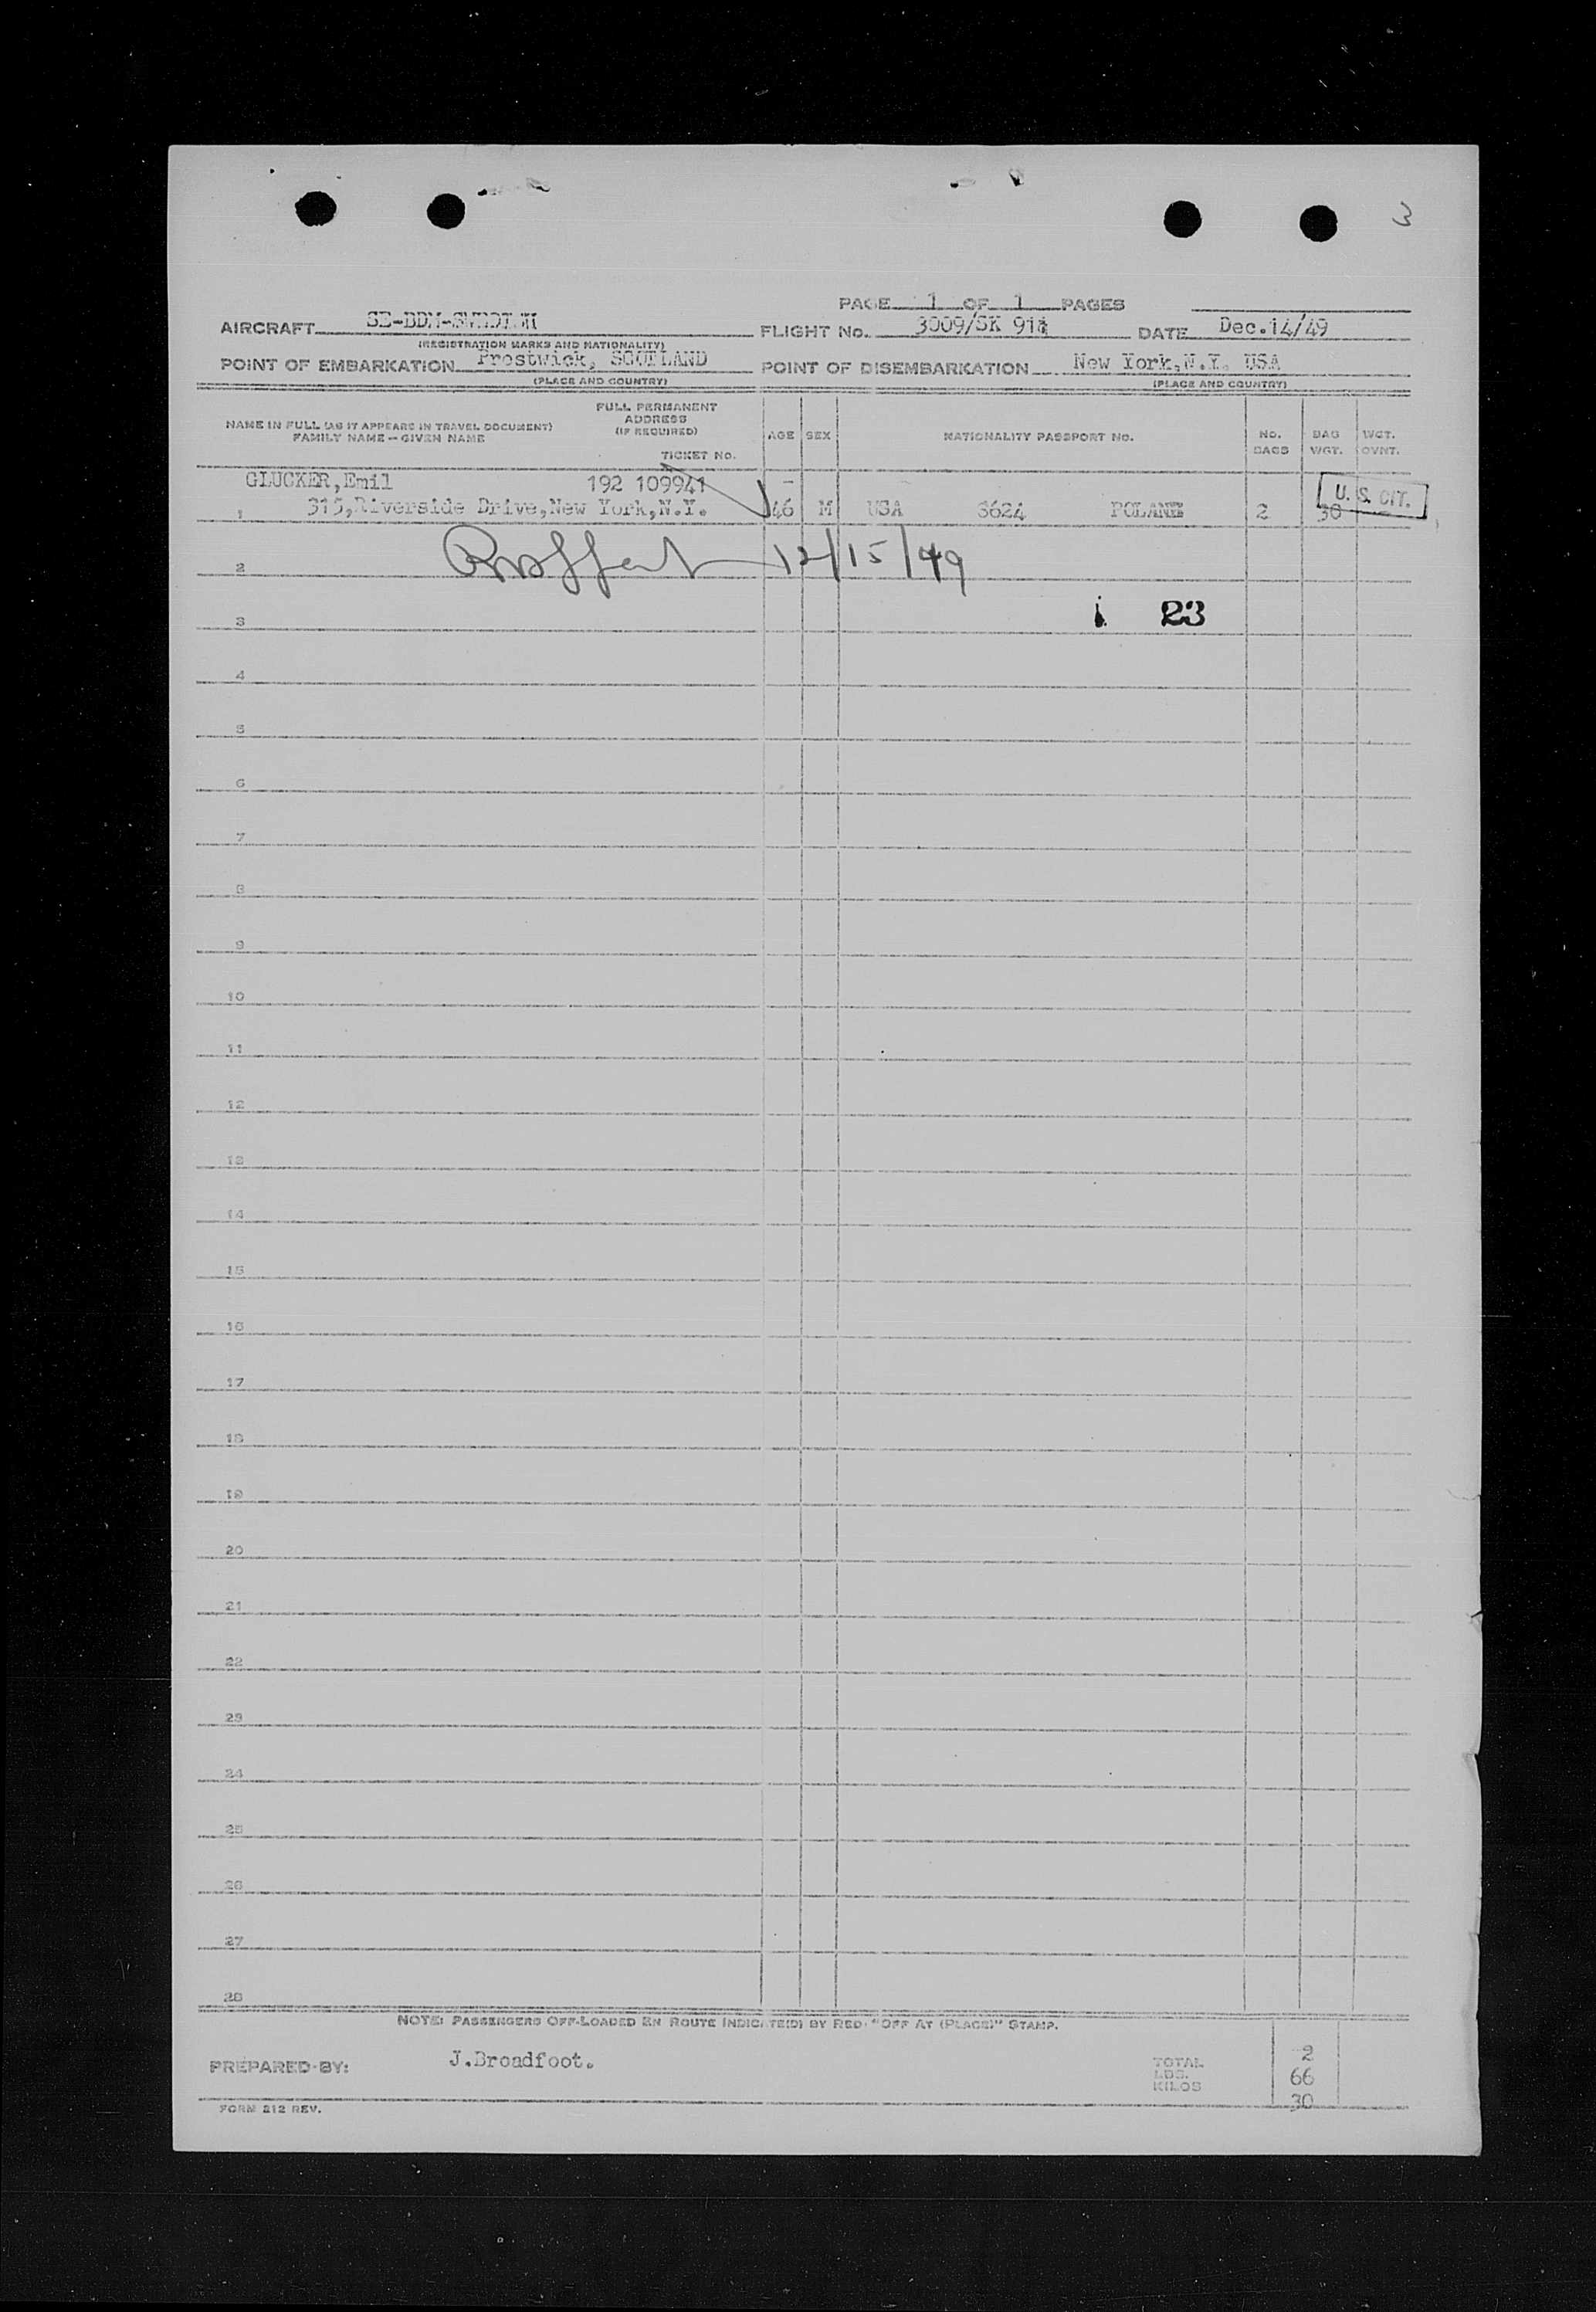 3
PAGE 1 OF 1 PAGES
AIRCRAFT SE-BDM-SWEDISH FLIGHT No. 3009/SK 911 DATE Dec.14/49
(REGISTRATION MARKS AND NATIONALITY)
POINT OF EMBARKATION Prestwick, SCOTLAND POINT OF DISEMBARKATION New York,N.Y. USA
(PLACE AND COUNTRY) (PLACE AND COUNTRY)
NAME IN FULL (AS IT APPEARS IN TRAVEL DOCUMENT) FAMILY NAME – GIVEN NAME FULL PERMANENT ADDRESS (IF REQUIRED) TICKET No. AGE SEX NATIONALITY PASSPORT No. No. BAGS BAG WGT. WGT. OVNT.
GLUCKER,Emil 192 109941 –
1 315,Riverside Drive,New York,N.Y. 46 M USA 3624 POLANE 2 30 U.S. CIT.
2 12/15/49
3 23
4
5
6
7
8
9
10
11
12
13
14
15
16
17
18
19
20
21
22
23
24
25
26
27
28
NOTE: PASSENGERS OFF-LOADED EN ROUTE INDICATE(D) BY RED "OFF AT (PLACE)" STAMP.
PREPARED BY: J.Broadfoot.
TOTAL 2
LBS. 66
KILOS 30
FORM 212 REV.